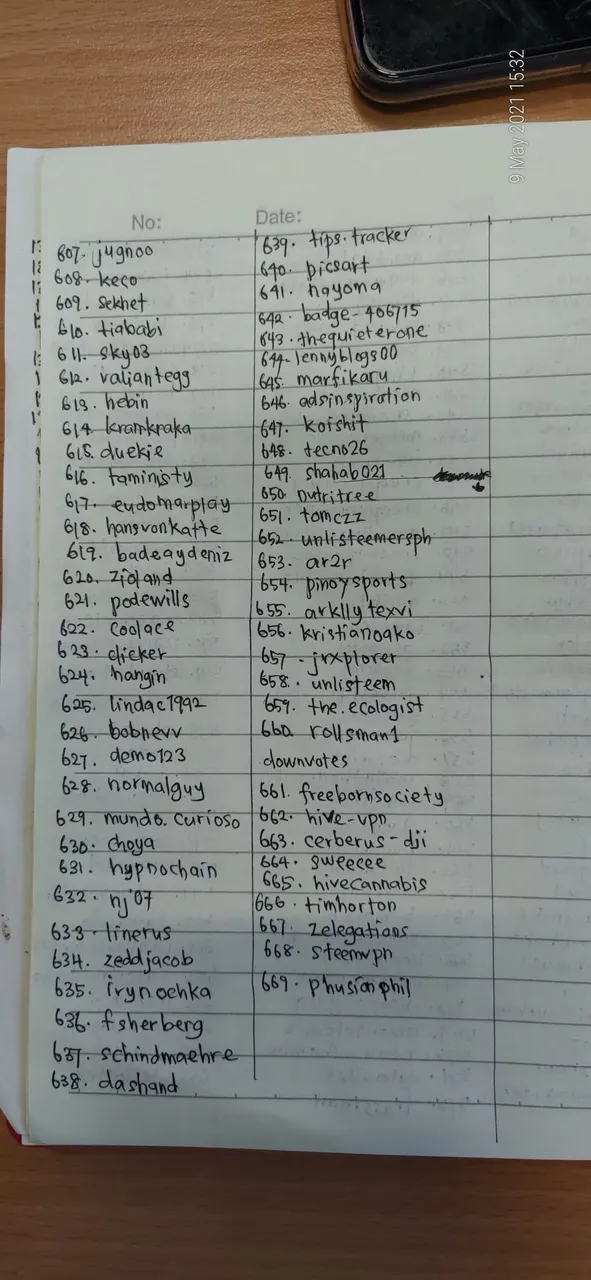 9 May 2021 15:32
No:
Date:
607. jugnoo
608. keco
609. sekhet
610. tiababi
611. sky03
612. valiantegg
613. hebin
614. kramkraka
615. duekie
616. taministy
617. eudomarplay
618. hansvonkatte
619. badeaydeniz
620. zioland
621. podewills
622. coolace
623. clicker
624. hangin
625. lindac1992
626. bobnevv
627. demo123
628. normalguy
629. mundo.curioso
630. choya
631. hypnochain
632. nj07
633. linerus
634. zeddjacob
635. irynochka
636. fsherberg
637. schindmaehre
638. dashand
639. tips.tracker
640. picsart
641. nayoma
642. badge-406715
643. thequieterone
644. lennyblogs00
645. marfikaru
646. adsinspiration
647. koishit
648. tecno26
649. shahab021
650. nutritree
651. tomczz
652. unlisteemersph
653. ar2r
654. pinoysports
655. arkllytexvi
656. kristianoako
657. jrxplorer
658. unlisteem
659. the.ecologist
660. rollsman1
downvotes
661. freebornsociety
662. hive-vpn
663. cerberus-dji
664. sweecee
665. hivecannabis
666. timhorton
667. zelegations
668. steemvpn
669. phusionphil